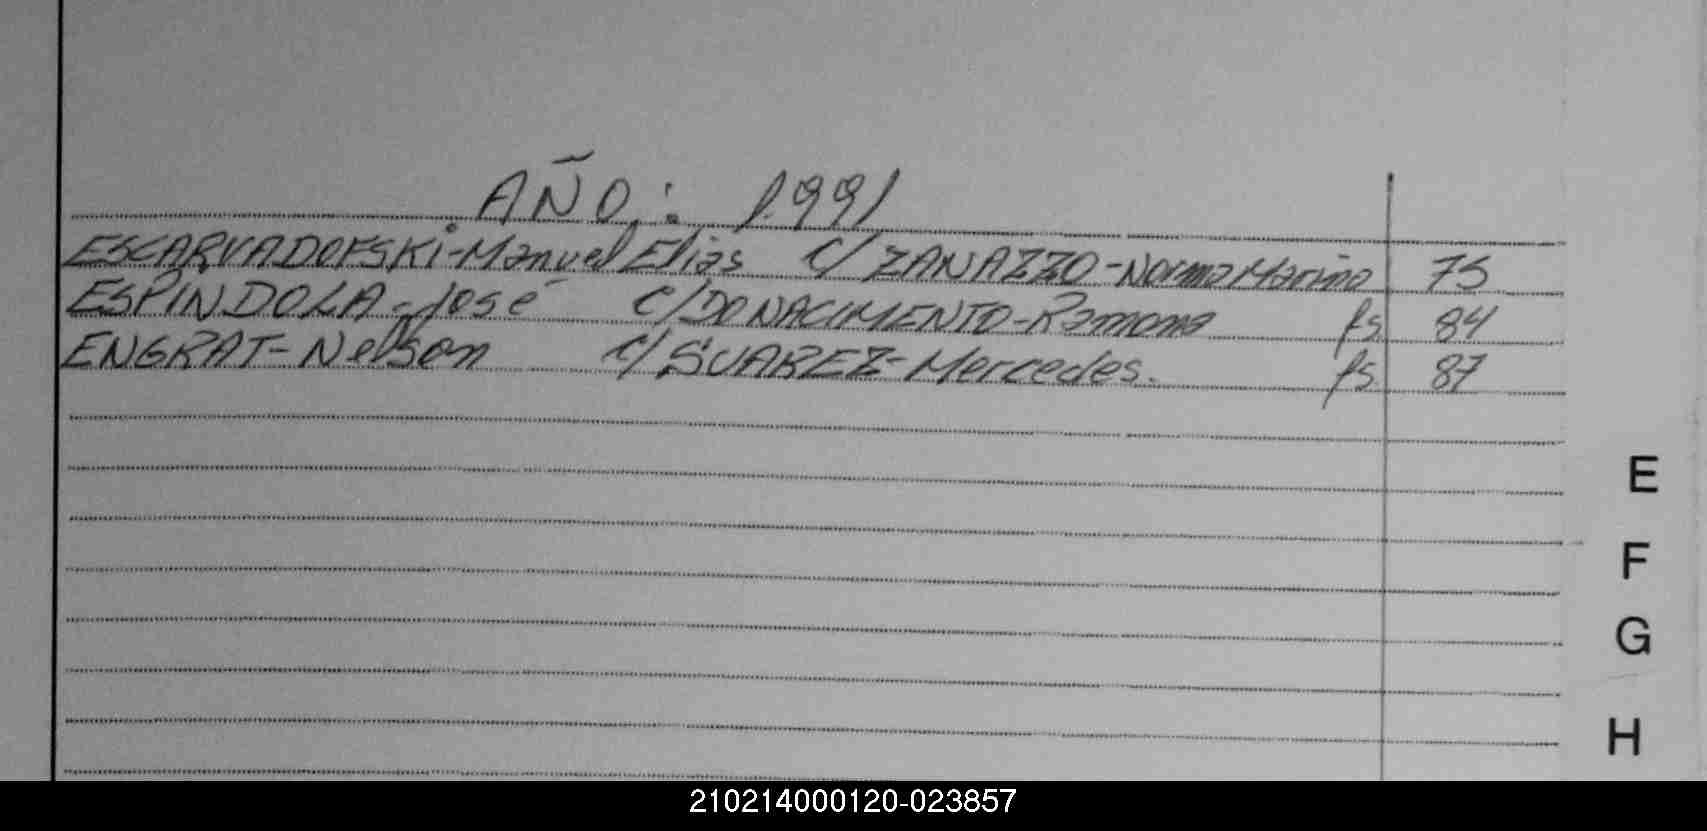 AÑO: 1991
ESCARVADOFSKi-Manuel Elias c/ ZANAZZO-Norma Marina 75
ESPINDOLA-José c/ DO NACIMENTO-Ramona fs. 84
ENGRAT-Nelson c/ SUAREZ-Mercedes. fs. 87
E
F
G
H
210214000120-023857